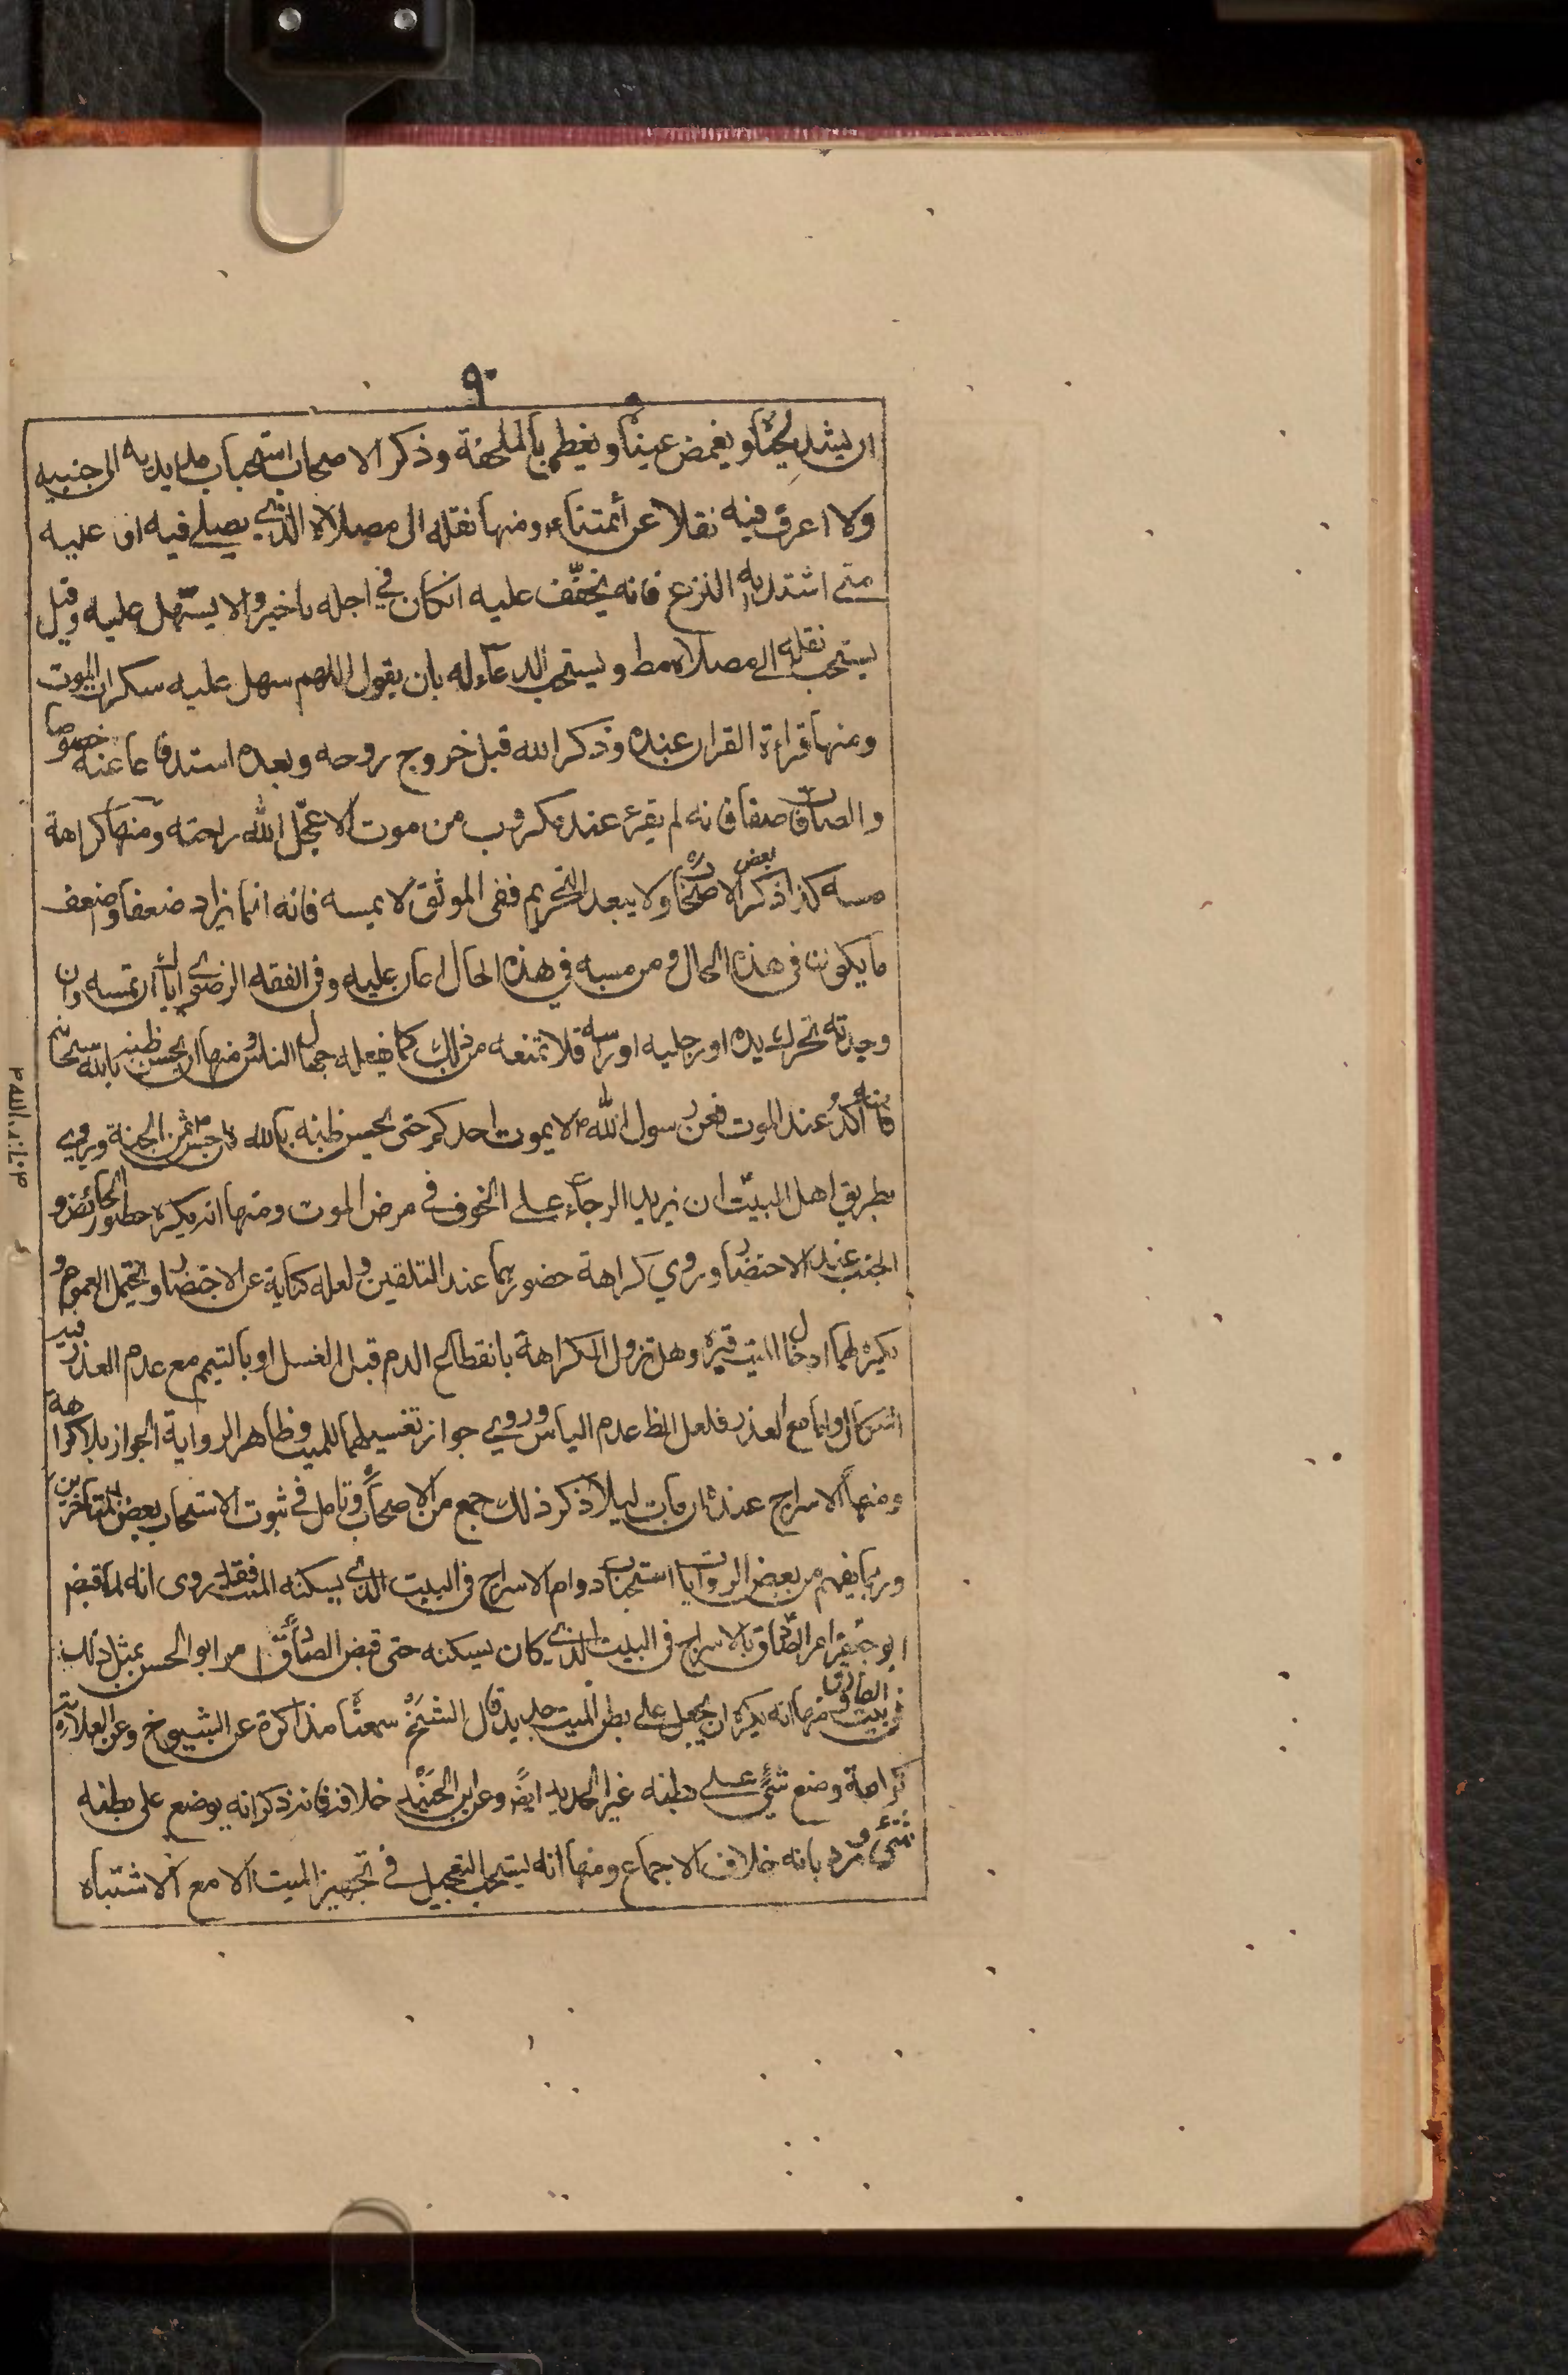 ٩٠
ان يشد لحياه و يغمض عيناه و يغطى بالملحفة و ذكر الاصحاب استحباب مد يديه الى جنبيه
ولا اعرف فيه نقلا عن أئمتناء و منها نقله الى مصلاه الذي يصلي فيه او عليه
متى اشتد به النزع فانه يخفف عليه انكان في اجله تاخير و الا يسهل عليه و قيل
يستحب نقله الى مصلاه مط و يستحب الدعاء له بان يقول اللهم سهل عليه سكرات الموت
و منها قراءة القران عنده و ذكر الله قبل خروج روحه و بعده استدفاعا عنه خصوصا
و الصافات صفا فانه لم يقرء عند مكروب من موت الا عجل الله راحته و منها كراهة
مسه كذا ذكر بعض الاصحاب ره ولا يبعد التحريم ففى الموثق لا يمسه فانه انما يزاد ضعفا و اضعف
ما يكون فى هذه الحال و من مسه في هذه الحال اعان عليه و فى الفقه الرضوى اياك ان تمسه و ان
وجدته تحرك يده او رجليه او راسه فلا تمنعه من ذلك كما يفعله جهال الناس و منها ان يحسن ظنه بالله سبحانه
فانه أكد عند الموت فعن رسول اللهص لا يموت احدكم حتى يحسن ظنه بالله فان حسن ثمن الجنة و يروى
بطريق اهل البيت ان يزيد الرجاء على الخوف في مرض الموت و منها انه يكره حضور الحائض و
الجنب عند الاحتضار و روي كراهة حضورهما عند التلقين و لعله كناية عن الاحتضار و يحتمل العموم و
يكره لهما ادخال الميت قبره و هل تزول الكراهة بانقطاع الدم قبل الغسل او بالتيمم مع عدم العذر فيه
اشكال و اما مع العذر فلعل الظ عدم الباس و روي جواز تغسيلهما للميت و ظاهر الرواية الجواز بلا كراهة
و منها الاسراج عنده ان مات ليلا ذكر ذلك جمع من الاصحاب و تامل في ثبوت الاستحباب بعض المتاخرين
و ربما يفهم من بعض الروايات استحباب دوام الاسراج فى البيت الذى يسكنه الميت فقد روى انه لما قبض
ابو جعفر امر الصادق بالاسراج فى البيت الذى كان يسكنه حتى قبض الصادق امر ابو الحسن بمثل ذلك
فى بيت الصادق و منها انه يكره ان يجعل على بطن الميت حديد قال الشيخ سمعناه مذاكرة عن الشيوخ و عن العلامة ره
كراهة وضع شئ على بطنه غير الحديد ايض و عن ابن الجنيد خلافه فانه ذكر انه يوضع على بطنه
شئ و رد بانه خلاف الاجماع و منها انه يستحب التعجيل في تجهيز الميت الا مع الاشتباه